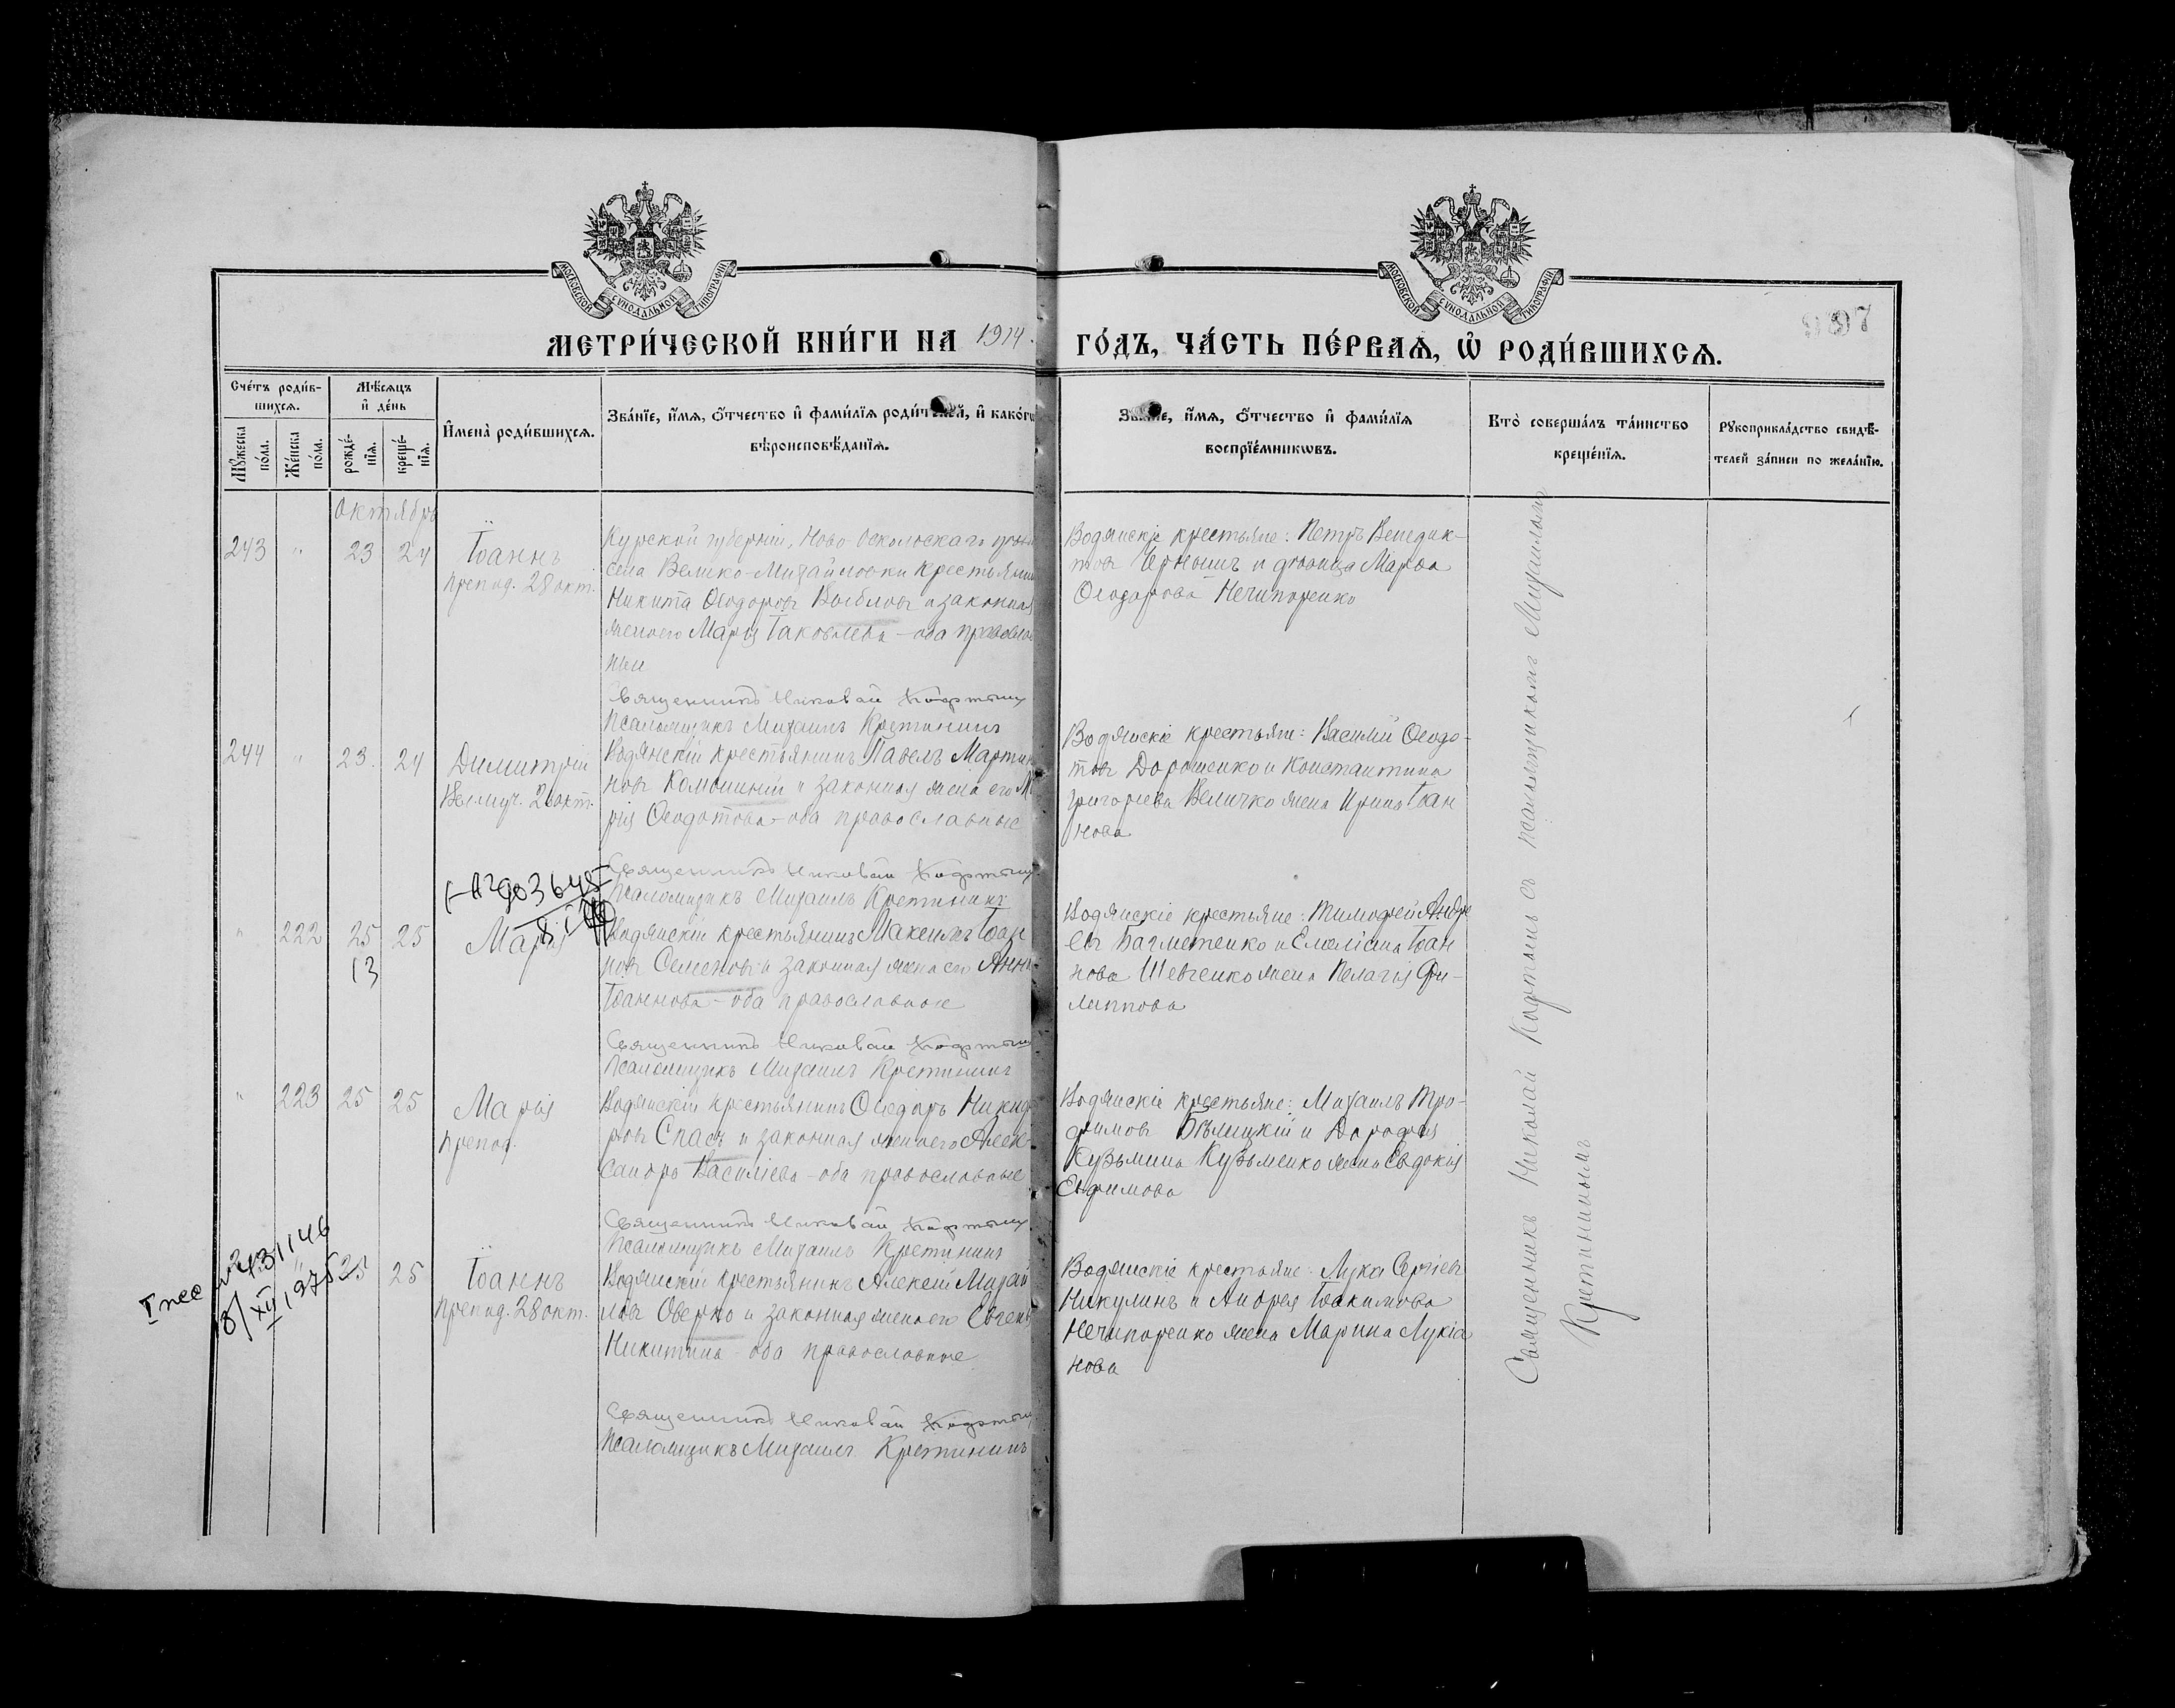 МОСКОВСКОЙ СѴНОДАЛЬНОЙ ТИПОГРАФІИ
МОСКОВСКОЙ СѴНОДАЛЬНОЙ ТИПОГРАФІИ
МЕТРИ́ЧЕСКОЙ КНИ́ГИ НА 1914.
ГО́ДЪ, ЧА́СТЬ ПЕ́РВАѦ, Ѡ҆ РОДИ́ВШИХСѦ.
Сче́тъ роди́в-
шихсѧ.
Мѣ́сѧцъ
и҆ де́нь
Мꙋ́жеска по́ла.
Же́нска по́ла.
рожде́-
нїѧ.
креще́-
нїѧ.
И҆мена̀ роди́вшихсѧ.
Зва́нїе, и҆́мѧ, ѻ҆́тчество и҆ фами́лїѧ роди́телей, и҆ како́гѡ
вѣроисповѣ́данїѧ.
Зва́нїе, и҆́мѧ, ѻ҆́тчество и҆ фами́лїѧ
воспрїе́мникѡвъ.
Кто̀ соверша́лъ та́инство
креще́нїѧ.
Рꙋкоприкла́дство свидѣ́-
телей за́писи по жела́нїю.
Октябрь
243 " 23 24 Іоаннъ
препод. 28 окт.
Курской губерніи, Ново-Оскольскаго
села Велико-Михайловки крестьянин
Никита Ѳеодоровъ и законная
жена его Марія Іаковлева – оба православ
ные
Водянскіе крестьяне: Петръ Венедик-
товъ Чернышъ и дѣвица Марѳа
Ѳеодорова Нечипоренко
Священникъ Николай
Псаломщикъ Михаилъ Кретининъ
244 " 23. 24 Димитрій
Велмуч. 26 окт.
Водянскій крестьянинъ Павелъ Мартин
новъ и законная жена его М
рія Ѳеодотова – оба православные
Водянскіе крестьяне: Василій Ѳеодо-
товъ Дорошенко и Константина
Григорьева Величко жена Ирина Іоан
нова
Священникъ Николай
Псаломщикъ Михаилъ Кретининъ
" 222 25 25 Марія
13
Водянскій крестьянинъ Максимъ Іоан
новъ Семеновъ и законная жена его Анна
Іоаннова – оба православные
Водянскіе крестьяне: Тимофей Андре
евъ Багметенко и Емеліана Іоан
нова Шевченко жена Пелагія Фи-
липпова
Священникъ Николай
Псаломщикъ Михаилъ Кретининъ
" 223 25 25 Марія
препод.
Водянскій крестьянинъ Ѳеодоръ Никиф
ровъ Спасъ и законная жена его Алек-
сандра Василіева – оба православные
Водянскіе крестьяне: Михаилъ Тро-
фимовъ Бѣлицкій и Дорофея
Кузьмина Кузьменко жена Евдокія
Евфимова
Священникъ Николай
Псаломщикъ Михаилъ Кретининъ
" 25 25 Іоаннъ
препод. 28 окт.
Водянскій крестьянинъ Алексій Михай
ловъ Оверко и законная жена его Евген
Никитина – оба православные
Водянскіе крестьяне: Лука Сергіевъ
Никулинъ и Андрея Іоакимова
Нечипоренко жена Марина Лукіа
нова
Священникъ Николай
Псаломщикъ Михаилъ Кретининъ
Священникъ Николай съ псаломщикомъ Михаиломъ
Кретининымъ